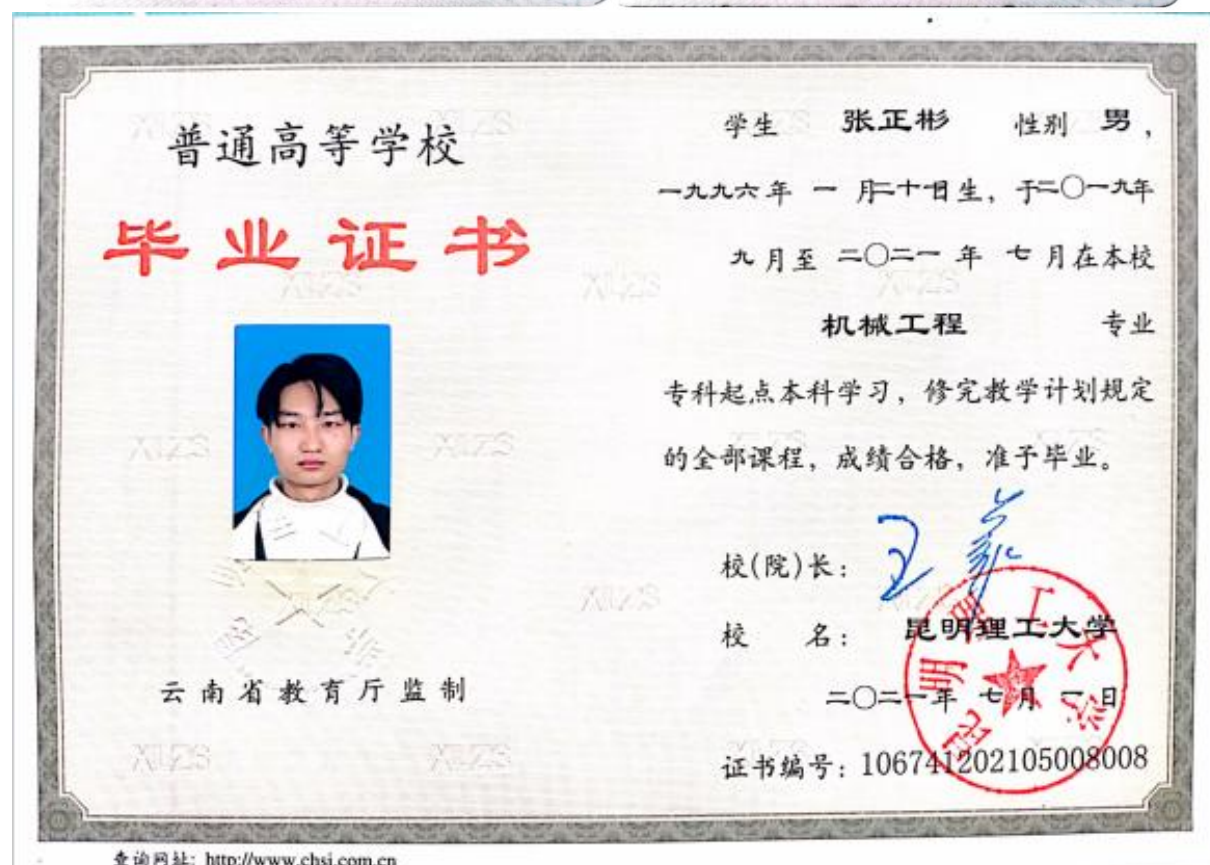 普通高等学校
毕业证书
云南省教育厅监制
学生 张正彬 性别 男,
一九九六年 一 月二十日生, 于二〇一九年
九月至 二〇二一 年 七 月在本校
机械工程 专业
专科起点本科学习, 修完教学计划规定
的全部课程, 成绩合格, 准予毕业。
校(院)长:
校 名: 昆明理工大学
二〇二一年 七月 一日
证书编号: 106741202105008008
昆明理工大学
XLZS
查询网址: http://www.chsi.com.cn